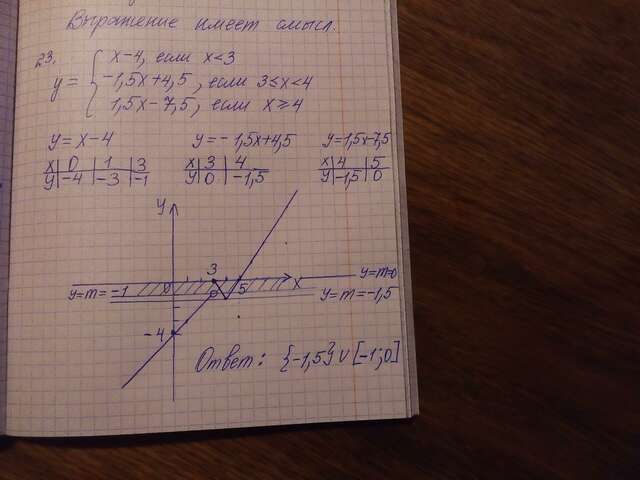 Выражение имеет смысл.
23.
y = { x-4, если x<3
-1,5x+4,5, если 3≤x<4
1,5x-7,5, если x≥4
y=x-4 y=-1,5x+4,5 y=1,5x-7,5
x | 0 | 1 | 3 x | 3 | 4 x | 4 | 5
y | -4 | -3 | -1 y | 0 | -1,5 y | -1,5 | 0
y
3
0 5 x y=m=0
y=m=-1 y=m=-1,5
-4
Ответ: {-1,5}∪[-1;0]